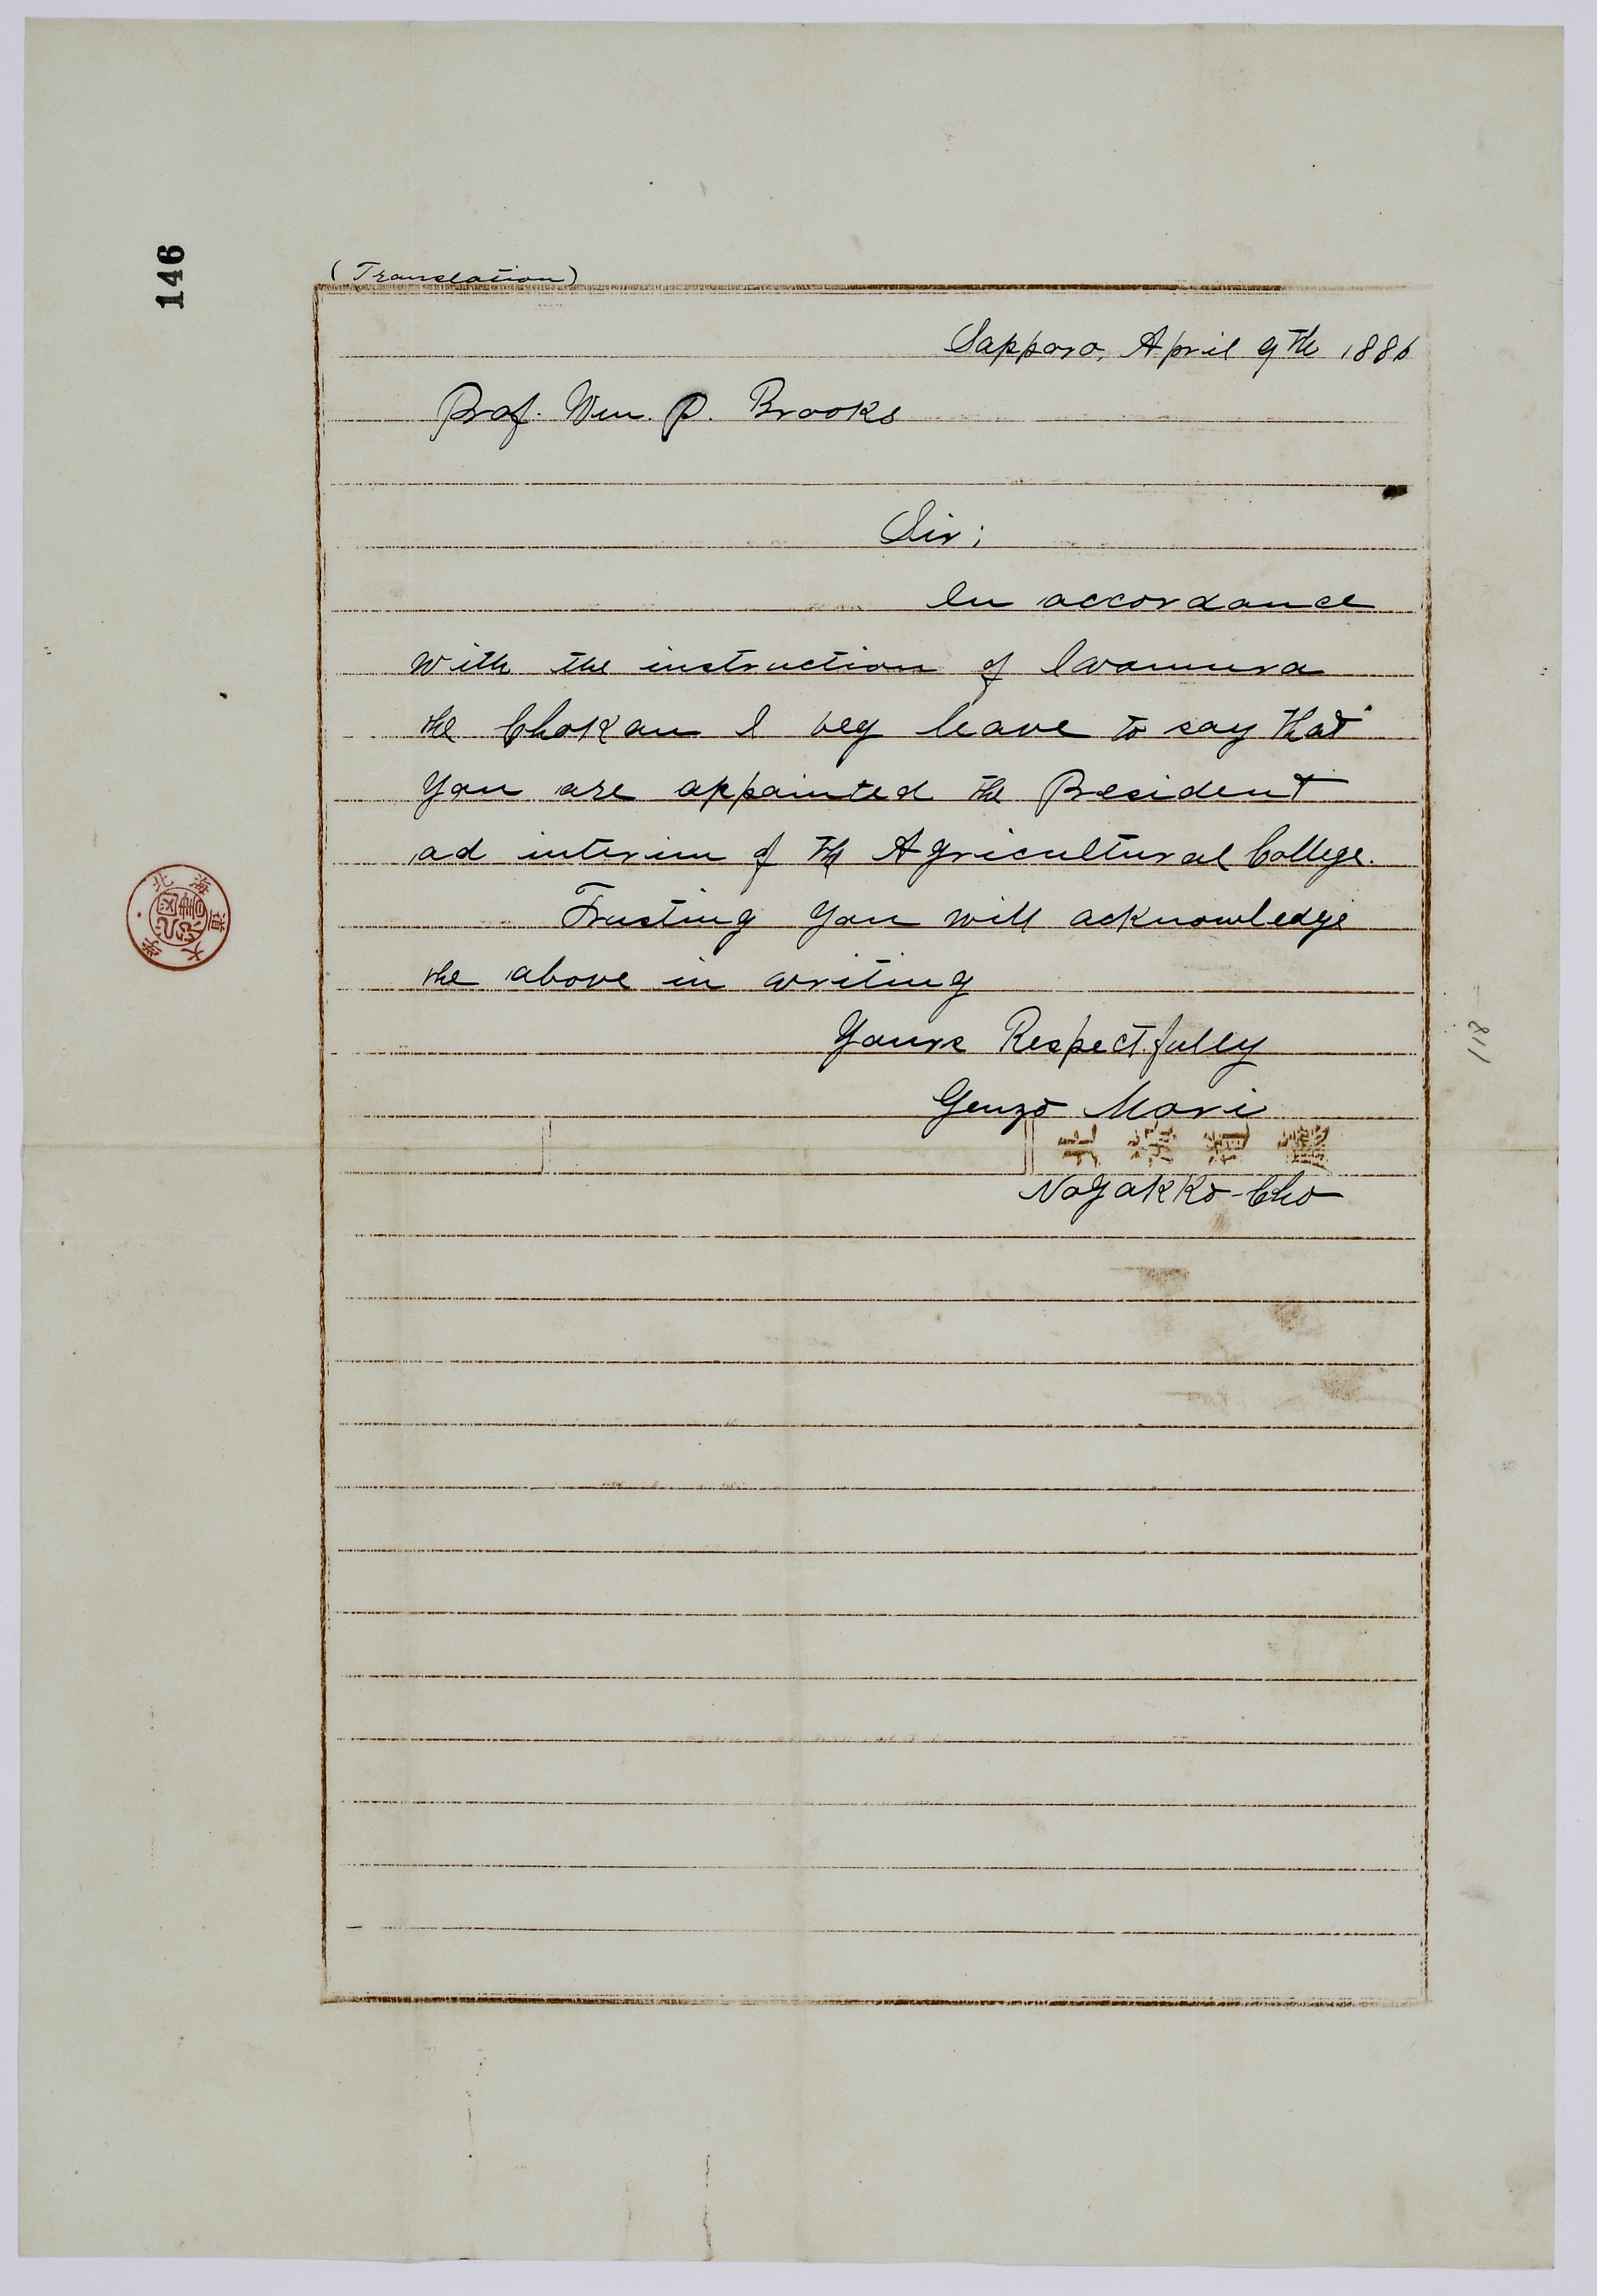 146
(Translation)
Sapporo, April 9th 1886
Prof. Wm. P. Brooks
Sir;
In accordance
with the instruction of Iwamura
the Chokan I beg leave to say that
you are appointed the President
ad interim of the Agricultural College.
Trusting you will acknowledge
the above in writing
Yours Respectfully
Genzo Mori
Nogakko-Cho
118
北海道大学